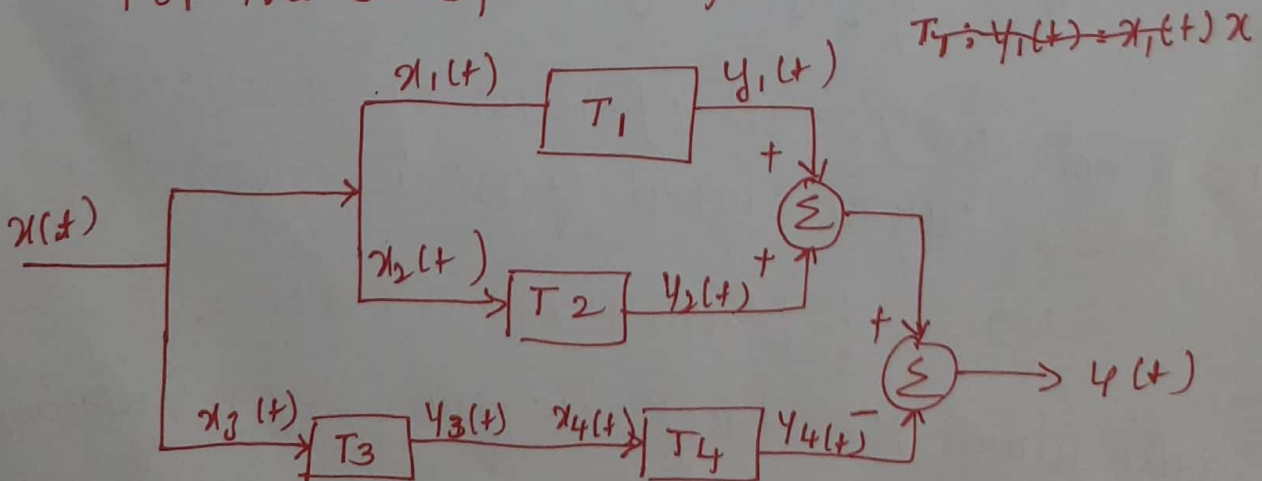 T1 : y1(t) = x1(t) x
x1(t) T1 y1(t)
+
x(t)
Σ
x2(t) T2 y2(t) +
+
Σ y(t)
x3(t) T3 y3(t) x4(t) T4 y4(t) −